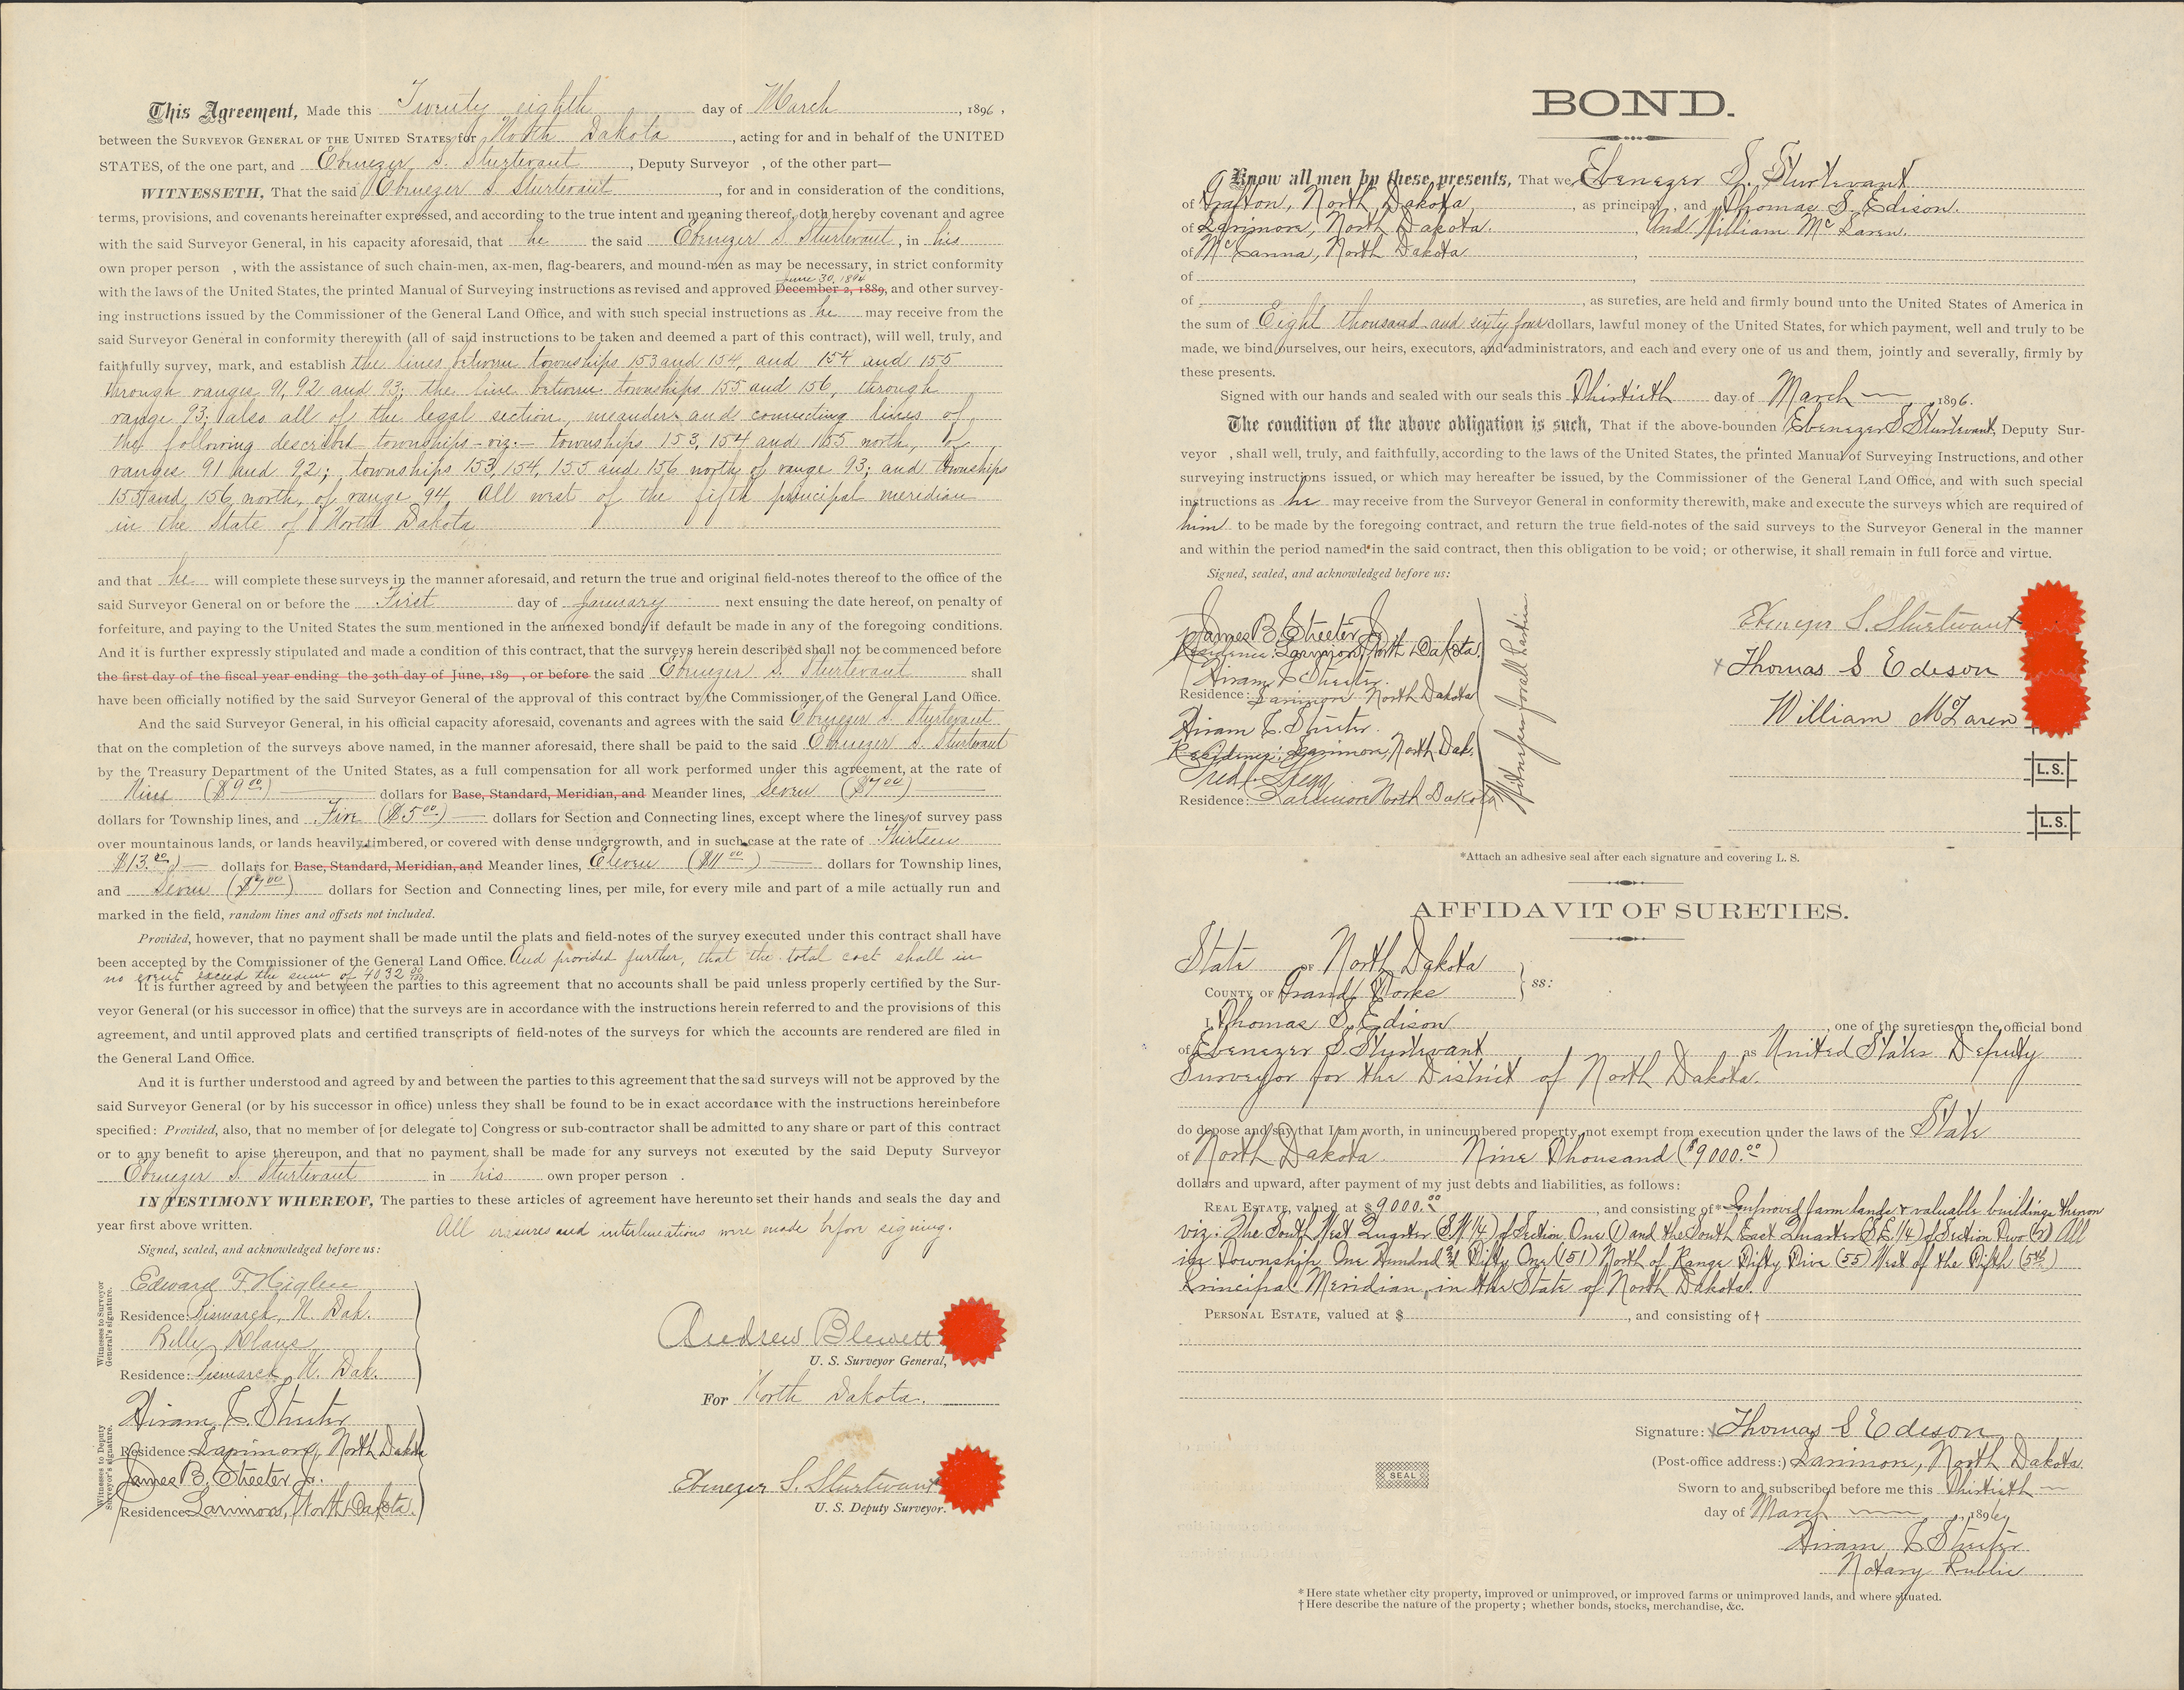 This Agreement, Made this Twenty eighth day of March, 1896,
between the SURVEYOR GENERAL OF THE UNITED STATES for North Dakota, acting for and in behalf of the UNITED
STATES, of the one part, and Ebenezer S. Sturtevant, Deputy Surveyor , of the other part—
WITNESSETH, That the said Ebenezer S Sturtevant, for and in consideration of the conditions,
terms, provisions, and covenants hereinafter expressed, and according to the true intent and meaning thereof, doth hereby covenant and agree
with the said Surveyor General, in his capacity aforesaid, that he the said Ebenezer S Sturtevant, in his
own proper person , with the assistance of such chain-men, ax-men, flag-bearers, and mound-men as may be necessary, in strict conformity
June 30, 1894
with the laws of the United States, the printed Manual of Surveying instructions as revised and approved December 2, 1889, and other survey-
ing instructions issued by the Commissioner of the General Land Office, and with such special instructions as he may receive from the
said Surveyor General in conformity therewith (all of said instructions to be taken and deemed a part of this contract), will well, truly, and
faithfully survey, mark, and establish the lines between townships 153 and 154, and 154 and 155
through ranges 91, 92 and 93; the line between townships 155 and 156, through
range 93; also all of the legal section, meander and connecting lines of
the following described townships – viz:– townships 153, 154 and 155 north, of
ranges 91 and 92; townships 153, 154, 155 and 156 north of range 93; and townships
155 and 156 north, of range 94, All west of the fifth principal meridian
in the State of North Dakota
and that he will complete these surveys in the manner aforesaid, and return the true and original field-notes thereof to the office of the
said Surveyor General on or before the First day of January next ensuing the date hereof, on penalty of
forfeiture, and paying to the United States the sum mentioned in the annexed bond, if default be made in any of the foregoing conditions.
And it is further expressly stipulated and made a condition of this contract, that the surveys herein described shall not be commenced before
the first day of the fiscal year ending the 30th day of June, 189 , or before the said Ebenezer S. Sturtevant shall
have been officially notified by the said Surveyor General of the approval of this contract by the Commissioner of the General Land Office.
And the said Surveyor General, in his official capacity aforesaid, covenants and agrees with the said Ebenezer S. Sturtevant
that on the completion of the surveys above named, in the manner aforesaid, there shall be paid to the said Ebenezer S. Sturtevant
by the Treasury Department of the United States, as a full compensation for all work performed under this agreement, at the rate of
Nine ($9.00) dollars for Base, Standard, Meridian, and Meander lines, Seven ($7.00)
dollars for Township lines, and Five ($5.00) dollars for Section and Connecting lines, except where the lines of survey pass
over mountainous lands, or lands heavily timbered, or covered with dense undergrowth, and in such case at the rate of Thirteen
$13.00) dollars for Base, Standard, Meridian, and Meander lines, Eleven ($11.00) dollars for Township lines,
and Seven ($7.00) dollars for Section and Connecting lines, per mile, for every mile and part of a mile actually run and
marked in the field, random lines and offsets not included.
Provided, however, that no payment shall be made until the plats and field-notes of the survey executed under this contract shall have
been accepted by the Commissioner of the General Land Office. And provided further, that the total cost shall in
no event exceed the sum of 4032 00/100.
It is further agreed by and between the parties to this agreement that no accounts shall be paid unless properly certified by the Sur-
veyor General (or his successor in office) that the surveys are in accordance with the instructions herein referred to and the provisions of this
agreement, and until approved plats and certified transcripts of field-notes of the surveys for which the accounts are rendered are filed in
the General Land Office.
And it is further understood and agreed by and between the parties to this agreement that the said surveys will not be approved by the
said Surveyor General (or by his successor in office) unless they shall be found to be in exact accordance with the instructions hereinbefore
specified: Provided, also, that no member of [or delegate to] Congress or sub-contractor shall be admitted to any share or part of this contract
or to any benefit to arise thereupon, and that no payment shall be made for any surveys not executed by the said Deputy Surveyor
Ebenezer S. Sturtevant in his own proper person .
IN TESTIMONY WHEREOF, The parties to these articles of agreement have hereunto set their hands and seals the day and
year first above written. All erasures and interlineations were made before signing.
Signed, sealed, and acknowledged before us:
Witnesses to Surveyor General's signature.
Edward F. Higbee
Residence: Bismarck, N. Dak.
Residence: Bismarck N. Dak.
Andrew Blewett
U. S. Surveyor General,
For North Dakota.
Witnesses to Deputy Surveyor's signature.
Hiram L. Streeter
Residence Larimore, North Dakota
James B. Streeter Jr.
Residence: Larimore, North Dakota.
Ebenezer S. Sturtevant
U. S. Deputy Surveyor.
BOND.
Know all men by these presents, That we, Ebenezer S. Sturtevant
of Grafton, North Dakota, as principal , and Thomas S. Edison.
of Larimore, North Dakota. , And William McLaren.
of McCanna, North Dakota ,
of
of , as sureties, are held and firmly bound unto the United States of America in
the sum of Eight thousand and sixty four dollars, lawful money of the United States, for which payment, well and truly to be
made, we bind ourselves, our heirs, executors, and administrators, and each and every one of us and them, jointly and severally, firmly by
these presents.
Signed with our hands and sealed with our seals this Thirtieth day of March, 1896.
The condition of the above obligation is such, That if the above-bounden Ebenezer S Sturtevant, Deputy Sur-
veyor , shall well, truly, and faithfully, according to the laws of the United States, the printed Manual of Surveying Instructions, and other
surveying instructions issued, or which may hereafter be issued, by the Commissioner of the General Land Office, and with such special
instructions as he may receive from the Surveyor General in conformity therewith, make and execute the surveys which are required of
him to be made by the foregoing contract, and return the true field-notes of the said surveys to the Surveyor General in the manner
and within the period named in the said contract, then this obligation to be void; or otherwise, it shall remain in full force and virtue.
Signed, sealed, and acknowledged before us:
James B. Streeter Jr
Residence: Larimore, North Dakota.
Hiram L Streeter.
Residence: Larimore North Dakota
Hiram L. Streeter.
Residence: Larimore, North Dak.
Fred Gregg
Residence: Larimore North Dakota
Witnesses for all parties
Ebenezer S. Sturtevant
x Thomas S Edison
William McLaren
L.S.
L.S.
*Attach an adhesive seal after each signature and covering L. S.
AFFIDAVIT OF SURETIES.
State OF North Dakota
COUNTY OF Grand Forks } ss:
I, Thomas S. Edison, one of the sureties on the official bond
of Ebenezer S. Sturtevant as United States Deputy
Surveyor for the District of North Dakota.
do depose and say that I am worth, in unincumbered property not exempt from execution under the laws of the State
of North Dakota. Nine Thousand ($9000.00)
dollars and upward, after payment of my just debts and liabilities, as follows:
REAL ESTATE, valued at $9000.00, and consisting of* Improved farm lands & valuable buildings thereon
viz: The South West Quarter (S.W.1/4) of Section One (1) and the South East Quarter (S.E.1/4) of Section Two (2) All
in Township One Hundred & Fifty One (151) North of Range Fifty Five (55) West of the Fifth (5th)
Principal Meridian, in the State of North Dakota.
PERSONAL ESTATE, valued at $ , and consisting of†
Signature: x Thomas S Edison
(Post-office address:) Larimore, North Dakota.
SEAL
Sworn to and subscribed before me this Thirtieth
day of March, 1896
Hiram L Streeter
Notary Public
* Here state whether city property, improved or unimproved, or improved farms or unimproved lands, and where situated.
† Here describe the nature of the property; whether bonds, stocks, merchandise, &c.